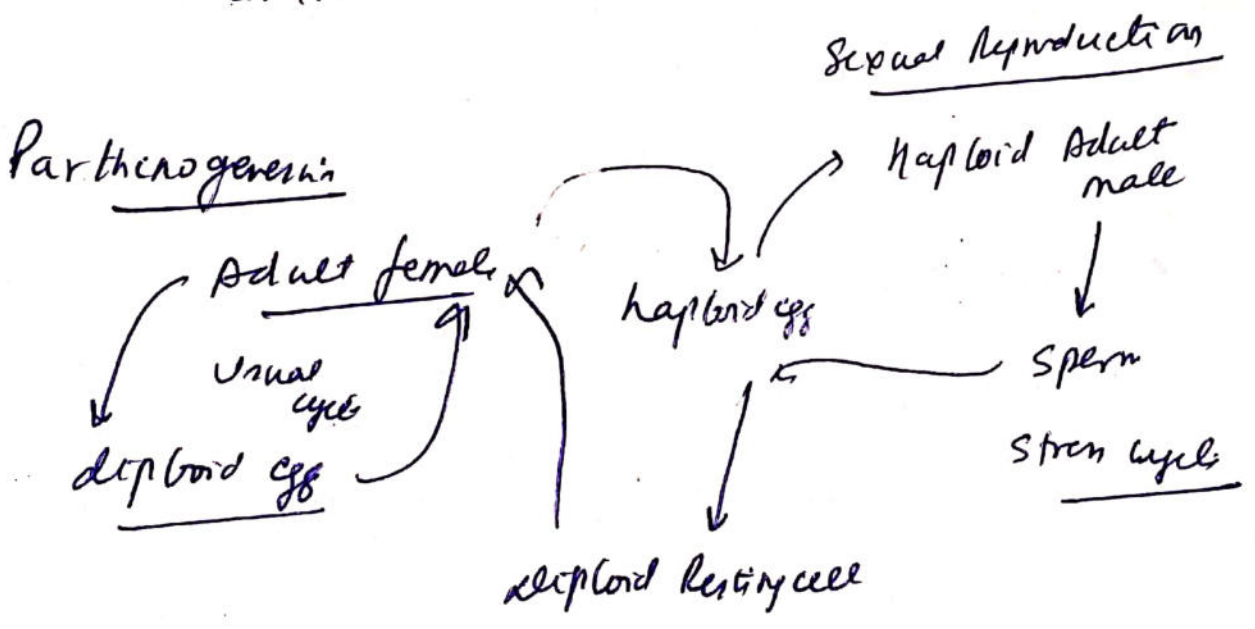 Sexual Reproduction
Parthenogenesis
haploid Adult
male
Adult female
haploid egg
Usual
cycle
Sperm
diploid egg
Stress cycle
diploid Resting cell